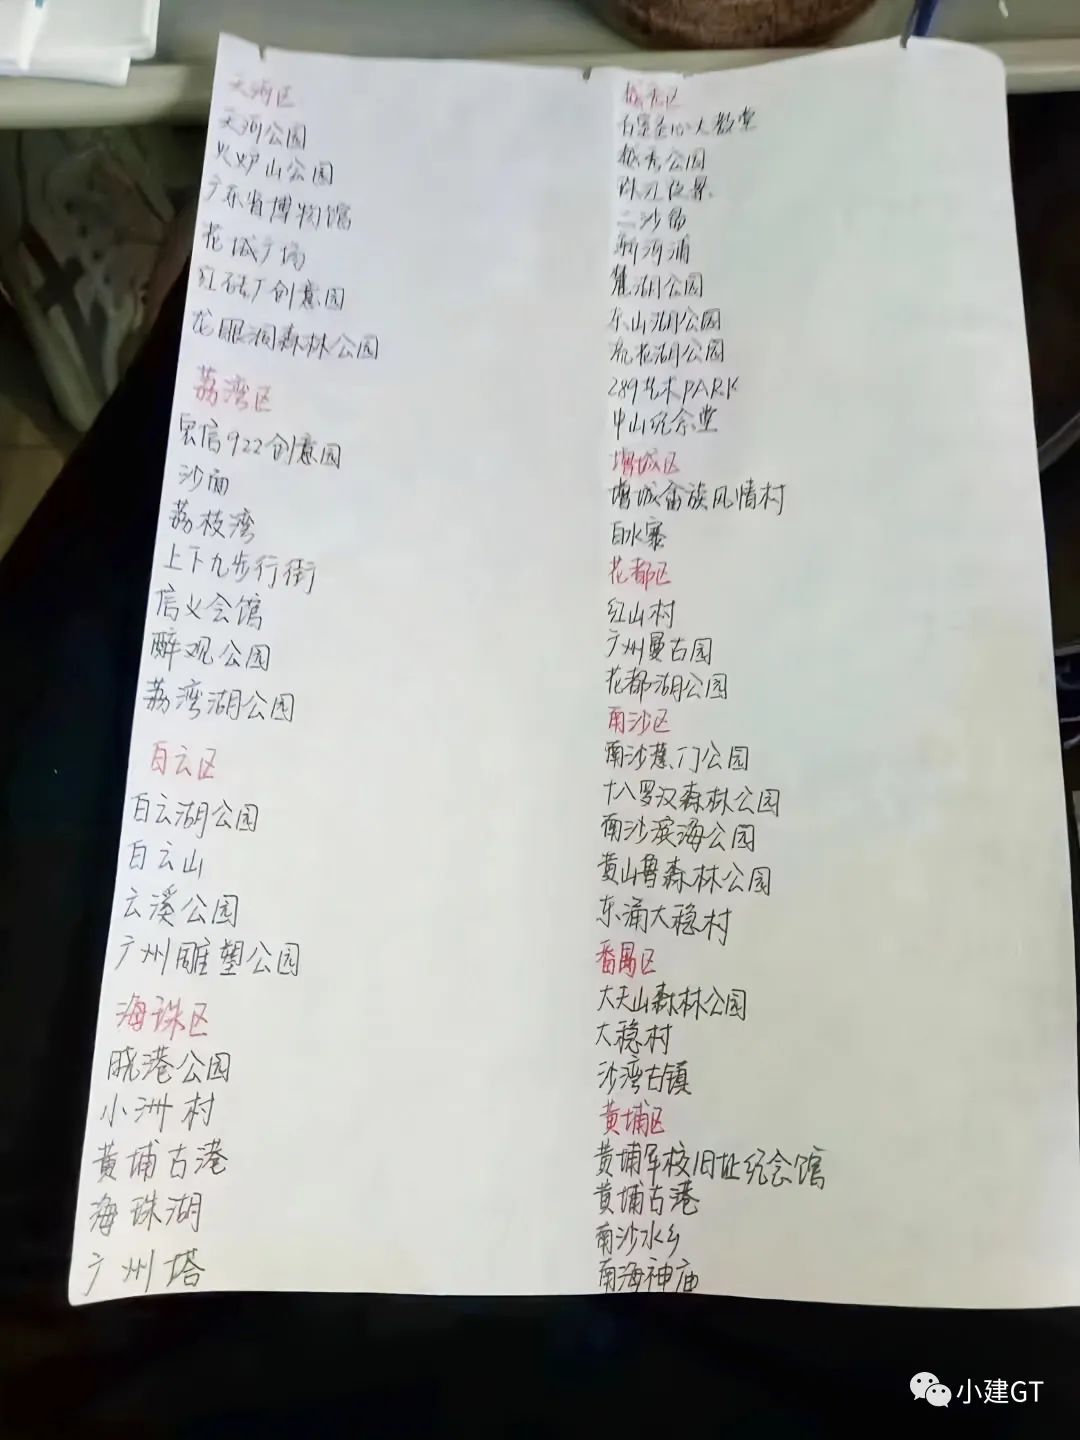 天河区
天河公园
火炉山公园
广东省博物馆
花城广场
红砖厂创意园
龙眼洞森林公园
荔湾区
宏信922创意园
沙面
荔枝湾
上下九步行街
信义会馆
醉观公园
荔湾湖公园
白云区
白云湖公园
白云山
云溪公园
广州雕塑公园
海珠区
晓港公园
小洲村
黄埔古港
海珠湖
广州塔
越秀区
石室圣心大教堂
越秀公园
珠江夜景
二沙岛
新河浦
麓湖公园
东山湖公园
流花湖公园
289艺术PARK
中山纪念堂
增城区
增城畲族风情村
白水寨
花都区
红山村
广州曼古园
花都湖公园
南沙区
南沙蕉门公园
十八罗汉森林公园
南沙滨海公园
黄山鲁森林公园
东涌大稳村
番禺区
大夫山森林公园
大稳村
沙湾古镇
黄埔区
黄埔军校旧址纪念馆
黄埔古港
南沙水乡
南海神庙
小建GT